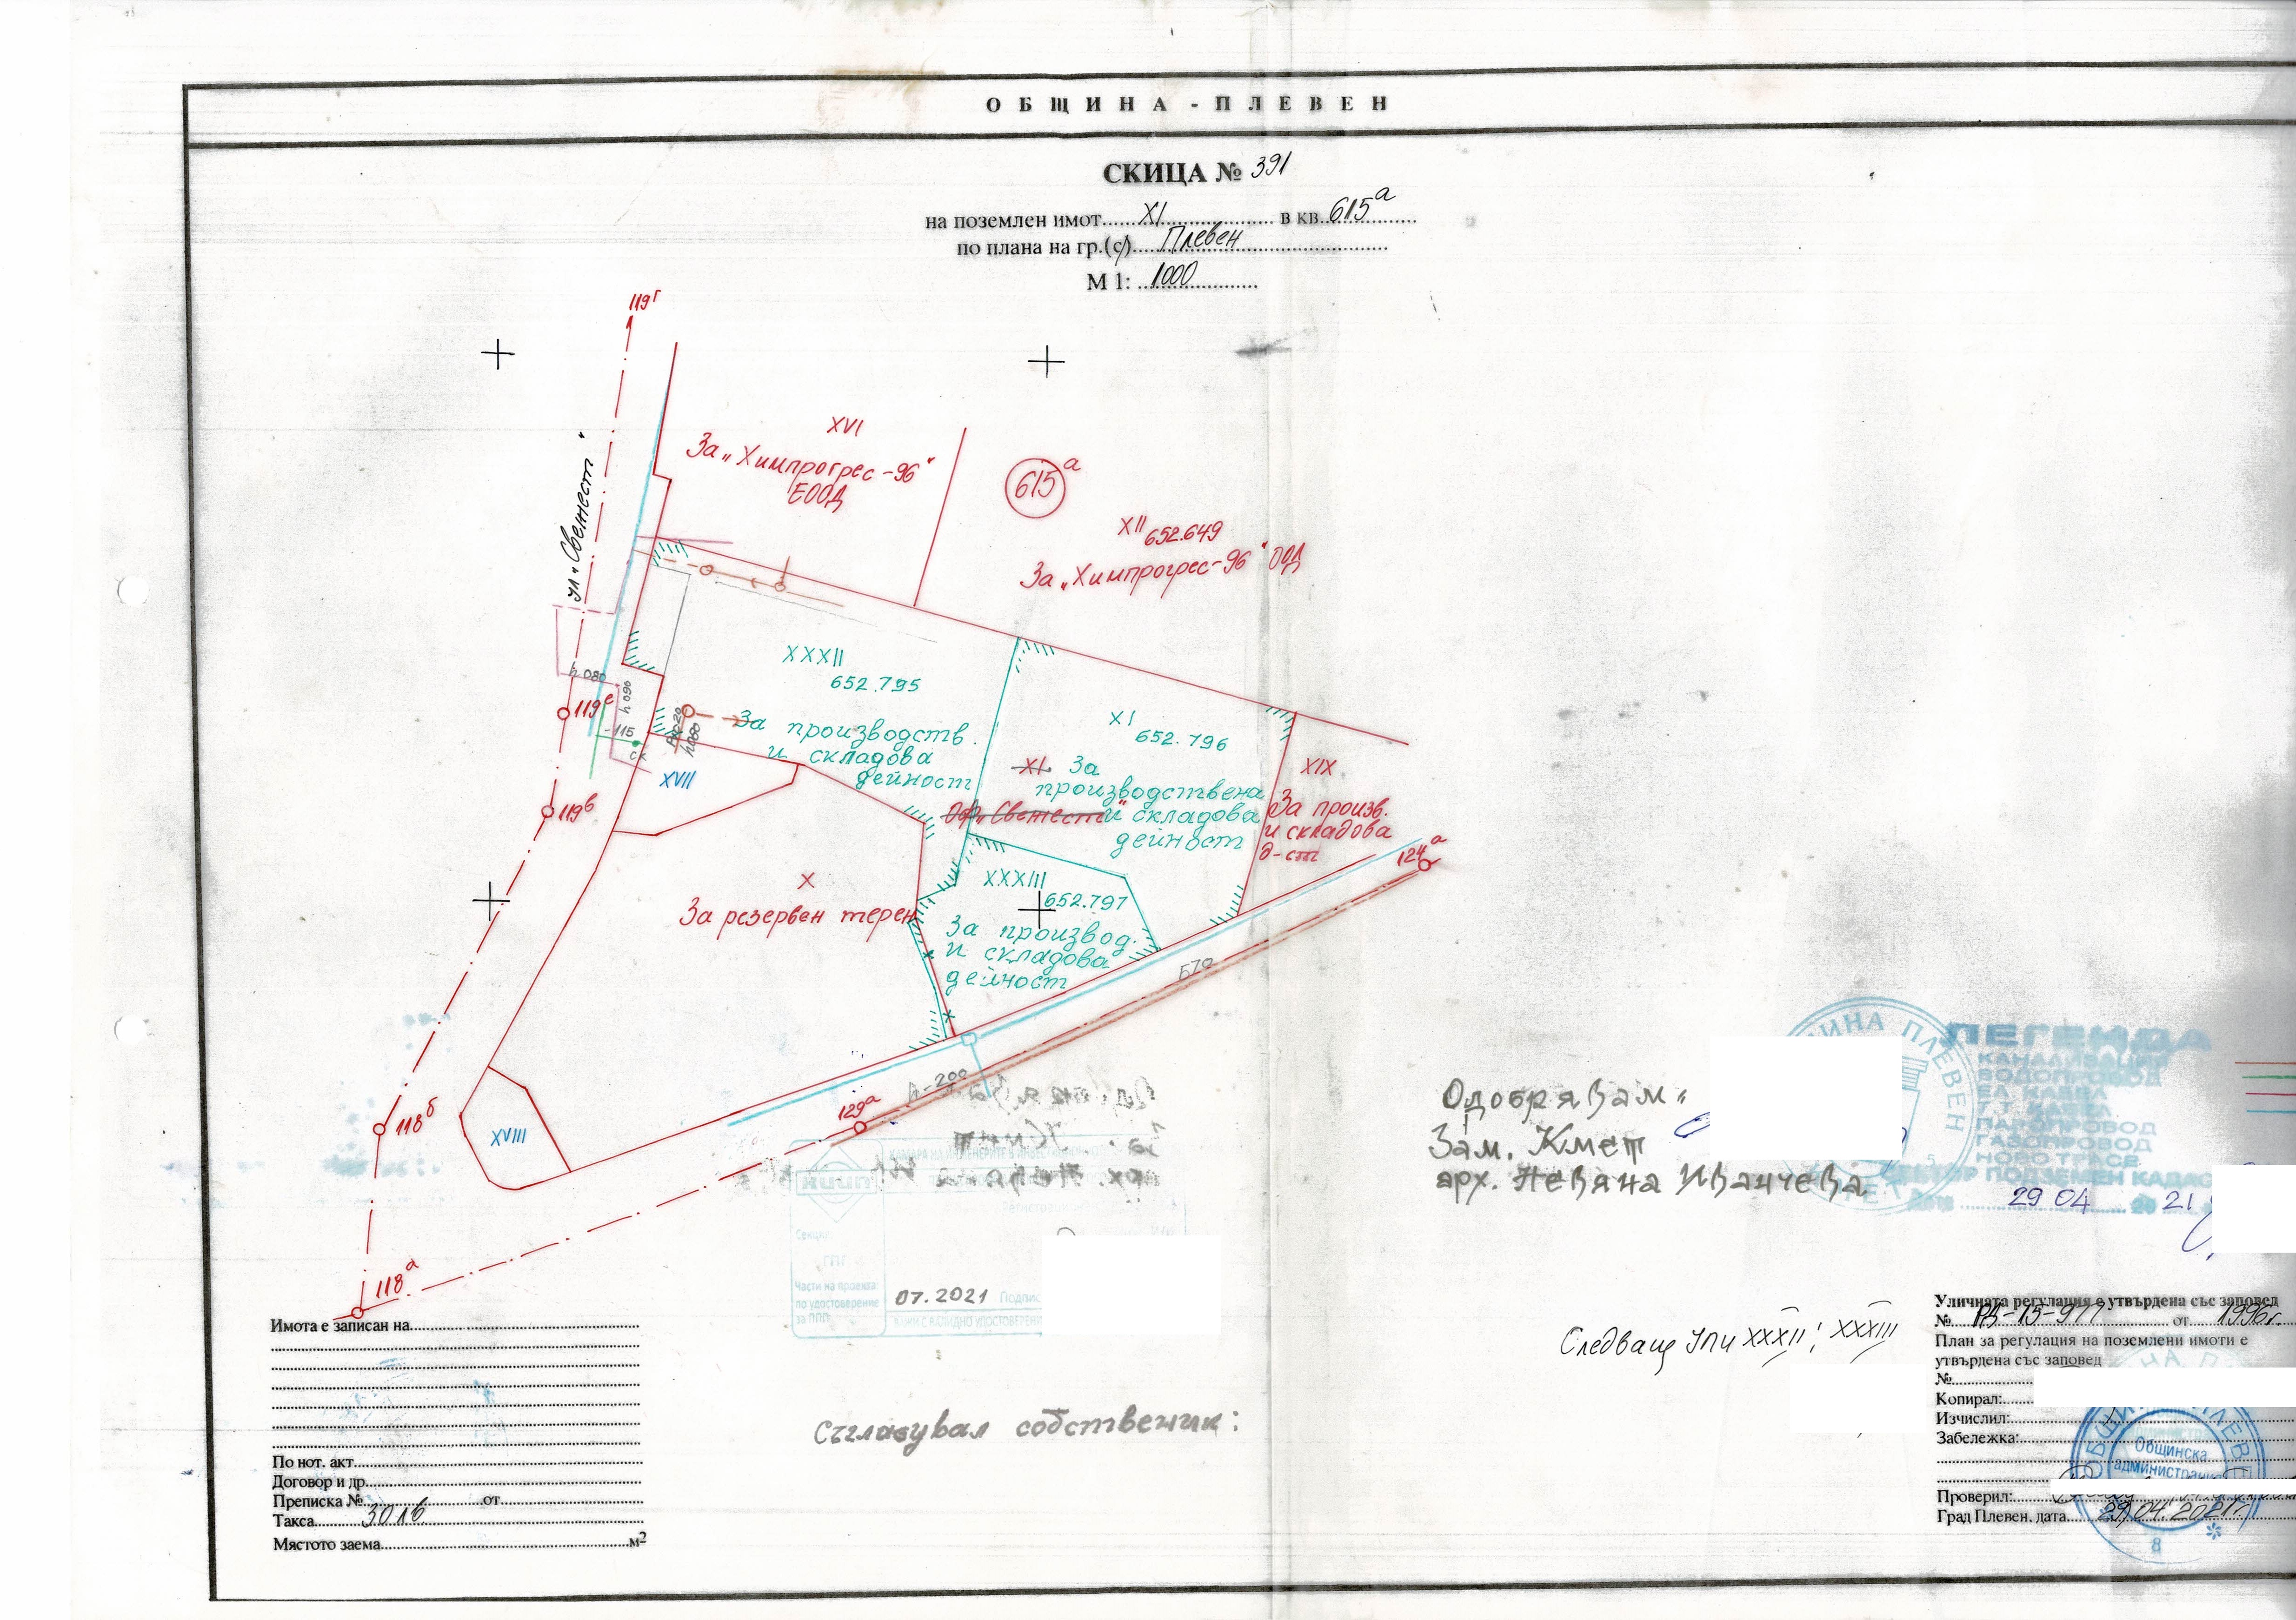 ОБЩИНА - ПЛЕВЕН
СКИЦА № 391
на поземлен имот......XI.................... в кв..615а............
по плана на гр.(с)....Плевен............................
М 1: ..1000..............
119г
XVI
За „Химпрогрес-96"
ЕООД
615а
XII 652.649
За „Химпрогрес-96" ООД
ул. „Свежест"
XXXII
652.795
За производств.
и складова
дейност
h 080
h 090
119е
-115
ск
h 080
XVII
XI
652.796
XI За
производствена
Оф. „Свежест" и складова
дейност
XIX
За произв.
и складова
д-ст
119в
124а
X
За резервен терен
XXXIII
652.797
За производ.
и складова
дейност
-200
129а
118б
XVIII
118а
Одобрявам:
Зам. Кмет
арх. Невяна Иванчева
ОБЩИНА ПЛЕВЕН
ЛЕГЕНДА
КАНАЛИЗАЦИЯ
ВОДОПРОВОД
ЕЛ. КАБЕЛ
Т.Т. КАБЕЛ
ПАРОПРОВОД
ГАЗОПРОВОД
НОВО ТРАСЕ
ПОДЗЕМЕН КАДАС
29 04 2021
КАМАРА НА ИНЖЕНЕРИТЕ В ИНВЕСТИЦИОН
КИИП
Секция:
Части на проекта:
по удостоверение
за ППП
07.2021 Подпис
Имота е записан на
По нот. акт
Договор и др.
Преписка № от
Такса 30 лв
Мястото заема м2
Съгласувал собственик:
Следващ УПИ XXXII; XXXIII
Уличната регулация е утвърдена със заповед
№ РД-15-977 от 1996г.
План за регулация на поземлени имоти е
утвърдена със заповед
№
Копирал:
Изчислил:
Забележка:
Общинска
администрация
Проверил:
Град Плевен, дата 29.04.2021г.
8